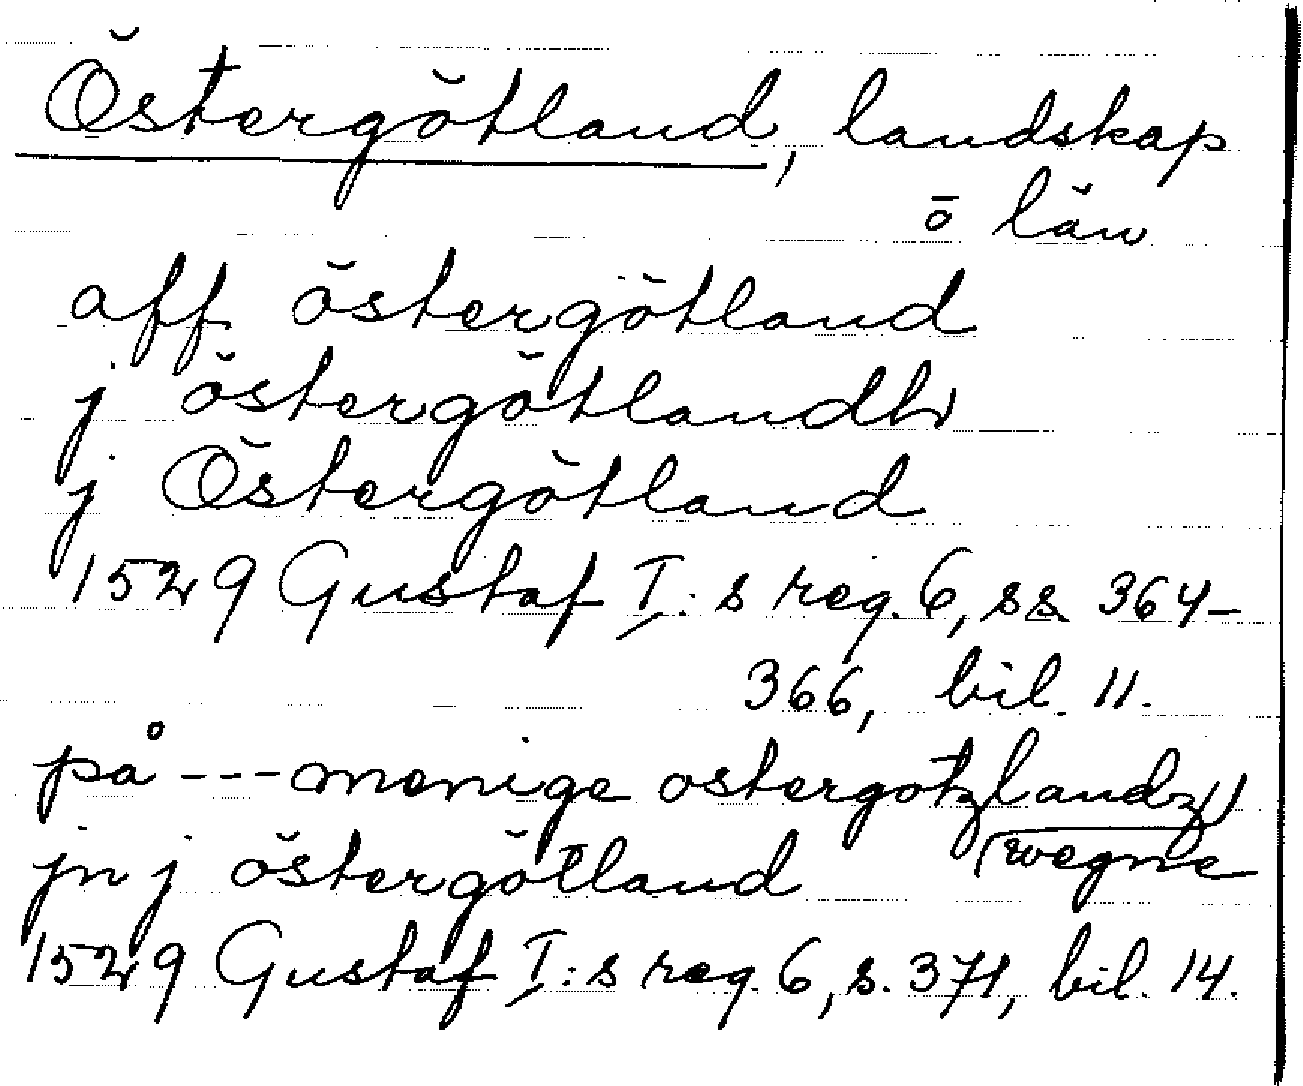 Östergötland, landskap
ō län
aff östergötland
j östergötlandh
j Östergötland
1529 Gustaf I:s reg. 6, ss 364-
366, bil. 11.
på --- menige ostergotzlandz
wegne
jn j östergötland
1529 Gustaf I:s reg. 6, s. 371, bil. 14.